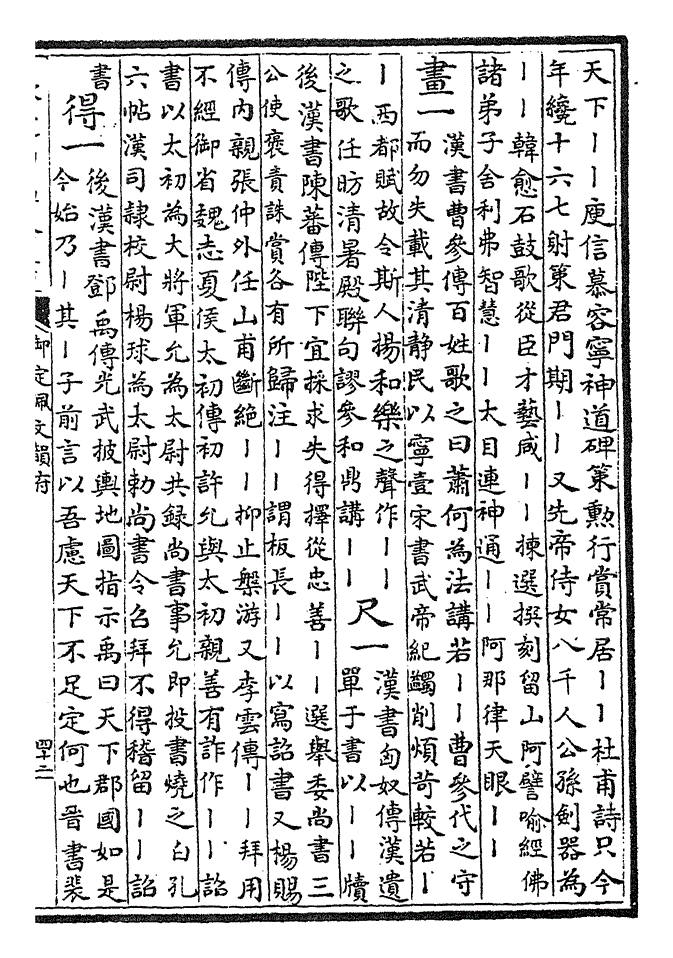 天下丨丨庾信慕容寧神道碑䇿勲行賞常居丨丨杜甫詩只今
年纔十六七射䇿君門期丨丨又先帝侍女八千人公孫劍器為
丨丨韓愈石鼓歌從臣才藝咸丨丨揀選撰刻留山阿譬喻經佛
諸弟子舍利弗智慧丨丨大目連神通丨丨阿那律天眼丨丨
畫一
漢書曹參傳百姓歌之曰蕭何為法講若丨丨曹參代之守
而勿失載其清静民以寧壹宋書武帝紀蠲削煩苛較若丨
丨西都賦故令斯人揚和樂之聲作丨丨
之歌任昉清暑殿聯句謬參和鼎講丨丨
尺一
漢書匈奴傳漢遺
單于書以丨丨牘
後漢書陳蕃傳陛下宜採求失得擇從忠善丨丨選舉委尚書三
公使褒責誅賞各有所歸注丨丨謂板長丨丨以寫詔書又楊賜
傳内親張仲外任山甫斷絶丨丨抑止槃游又李雲傳丨丨拜用
不經御省魏志夏侯太初傳初許允與太初親善有詐作丨丨詔
書以太初為大將軍允為太尉共録尚書事允即投書燒之白孔
六帖漢司隷校尉楊球為太尉勅尚書令召拜不得稽留丨丨詔
書
得一
後漢書鄧禹傳光武披輿地圖指示禹曰天下郡國如是
今始乃丨其丨子前言以吾慮天下不足定何也晉書裴
御定佩文韻府
四十二